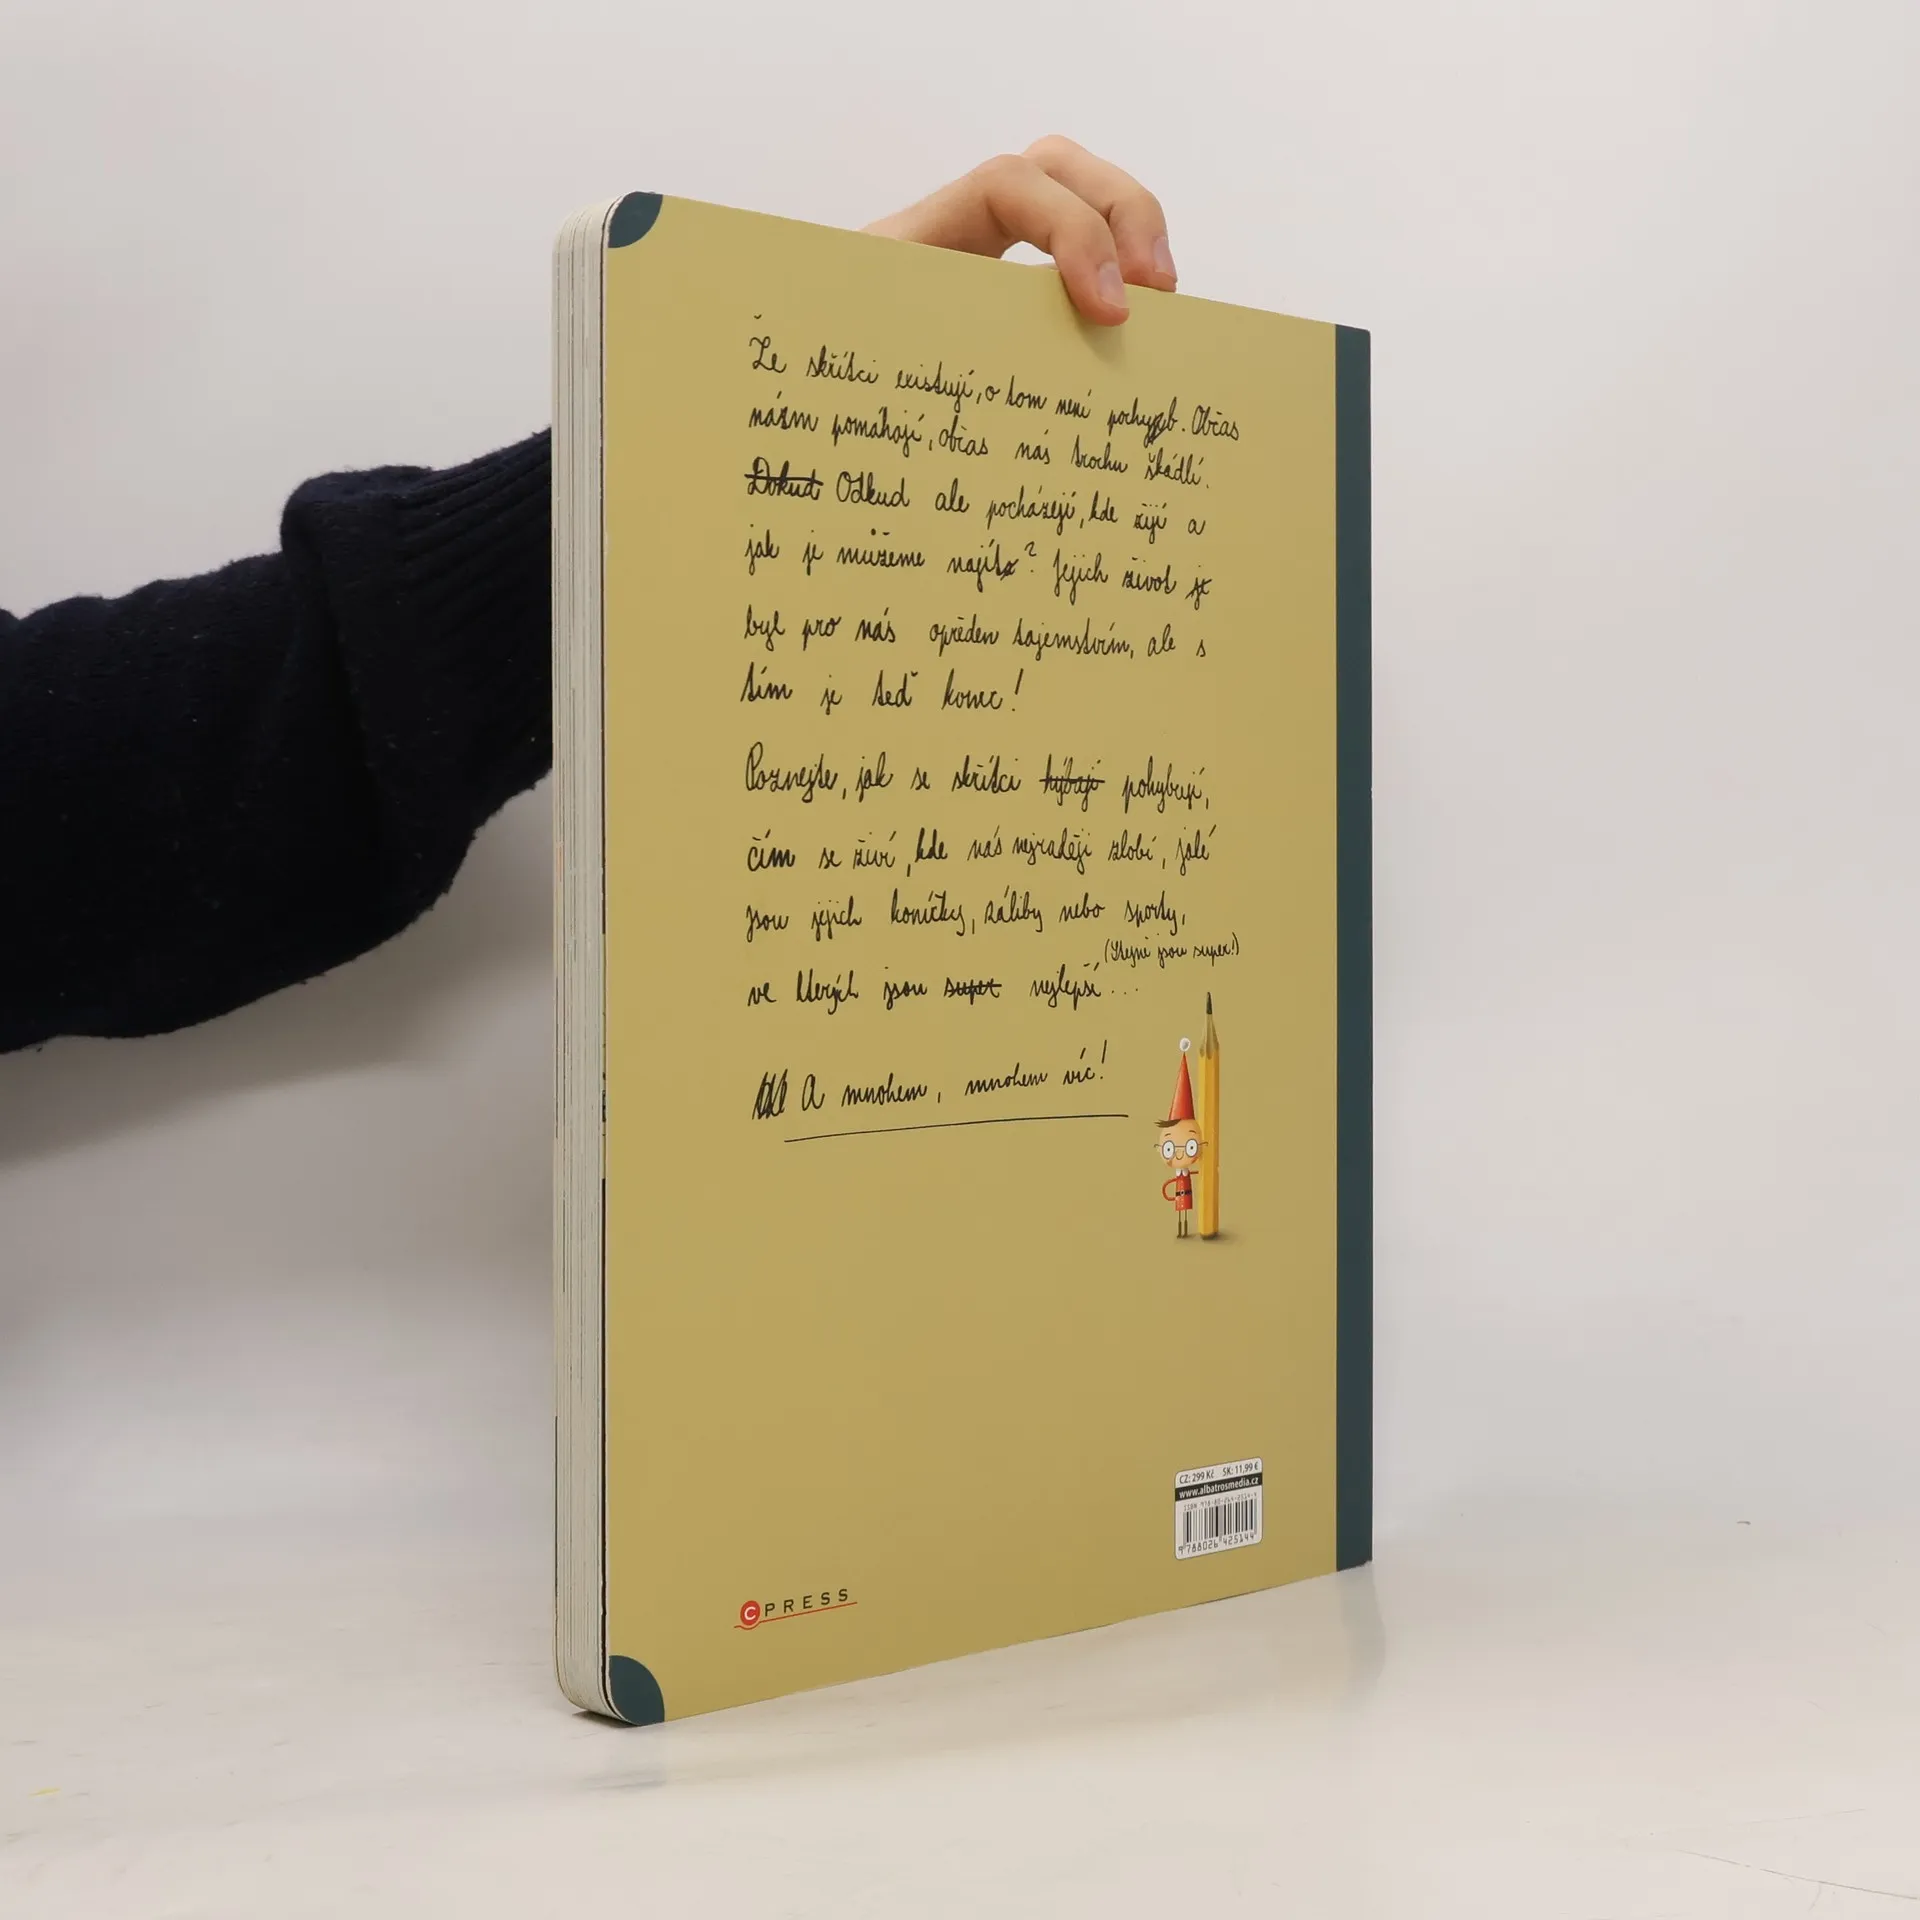 Že skřítci existují, o tom není pochyb. Občas
nám pomáhají, občas nás trochu škádlí.
Dokud Odkud ale pocházejí, kde žijí a
jak je můžeme najít? Jejich život je
byl pro nás opředen tajemstvím, ale s
tím je teď konec!
Poznejte, jak se skřítci hýbají pohybují,
čím se živí, kde nás nejraději zlobí, jaké
jsou jejich koníčky, záliby nebo sporty,
(Stejně jsou super!)
ve kterých jsou super nejlepší...
A mnohem, mnohem víc!
CZ: 299 Kč SK: 11,99 €
www.albatrosmedia.cz
ISBN 978-80-264-2514-4
9 788026 425144
CPRESS